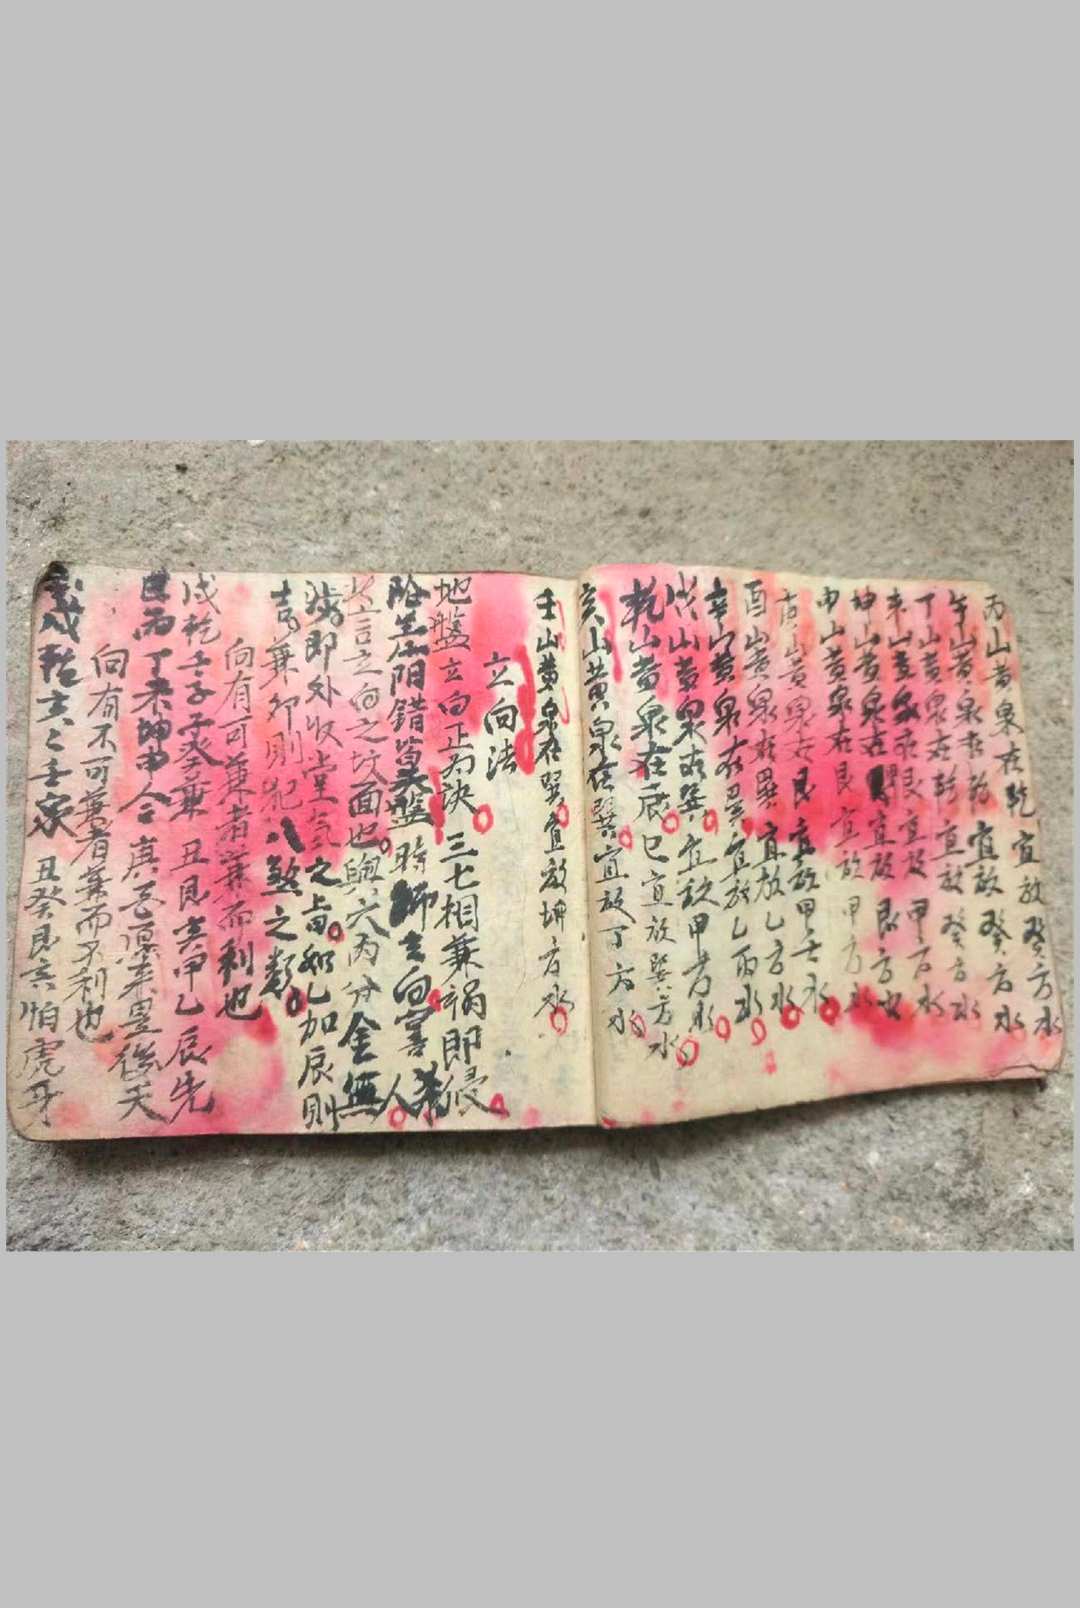 丙山黄泉在乾宜放癸方水
午山黄泉在乾宜放癸方水
丁山黄泉在乾宜放癸方水
未山黄泉在艮宜放甲方水
坤山黄泉在宜放艮方
申山黄泉在艮宜放甲方水
山黄泉在艮宜放甲壬水
酉山黄泉在巽宜放乙方水
辛山黄泉在巽宜放乙丙水
戌山黄泉在巽宜放甲方水
乾山黄泉在辰巳宜放巽方水
亥山黄泉在巽宜放丁方水
壬山黄泉在巽宜放坤方水
立向法
地盤立向正為訣三七相兼禍即侵
陰差陽錯盤時師立向害人
言立向之坟面也與穴內分金無
涉即外收堂氣之加辰則
吉兼卯則犯八煞之類
向有可兼者兼而利也
戌乾壬子子癸兼丑艮寅甲乙辰先
丙丁未坤申後天
向有不可兼者兼而不利也
戌乾亥々壬家丑癸艮亥怕虎牙